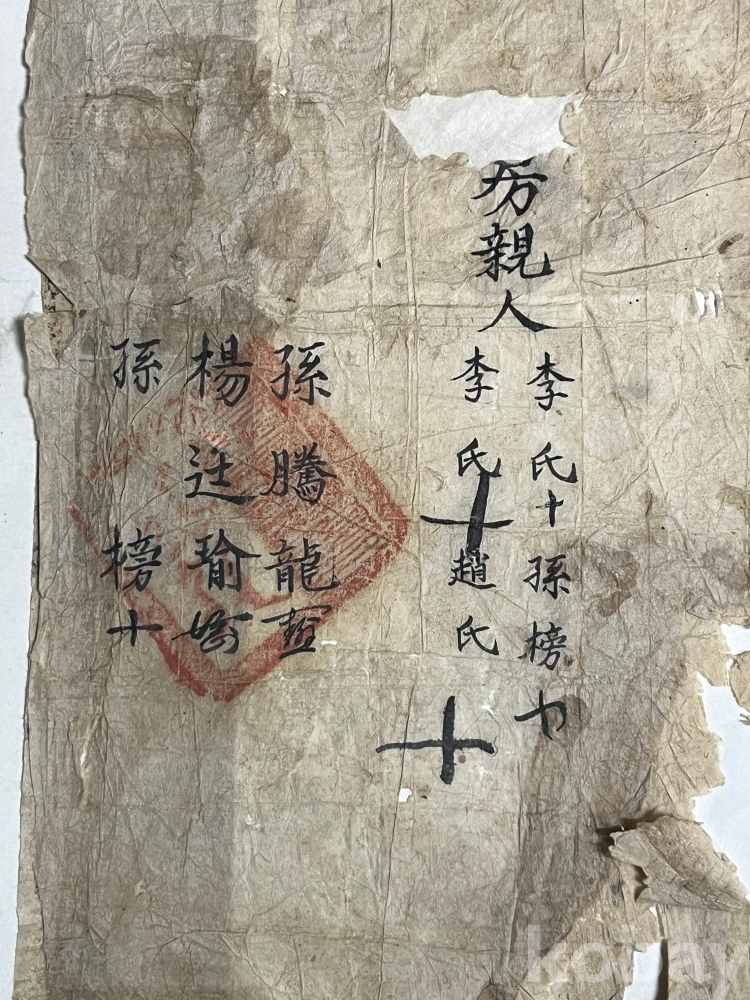 房親人
李氏十孫榜十
李氏十趙氏十
孫騰龍
楊廷瑜
孫榜十